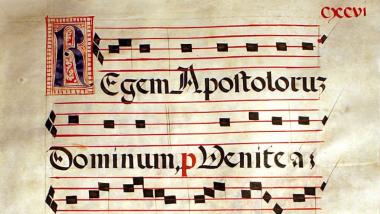 CXCVI
REgem Apostoloruz
Dominum, p Venite a;